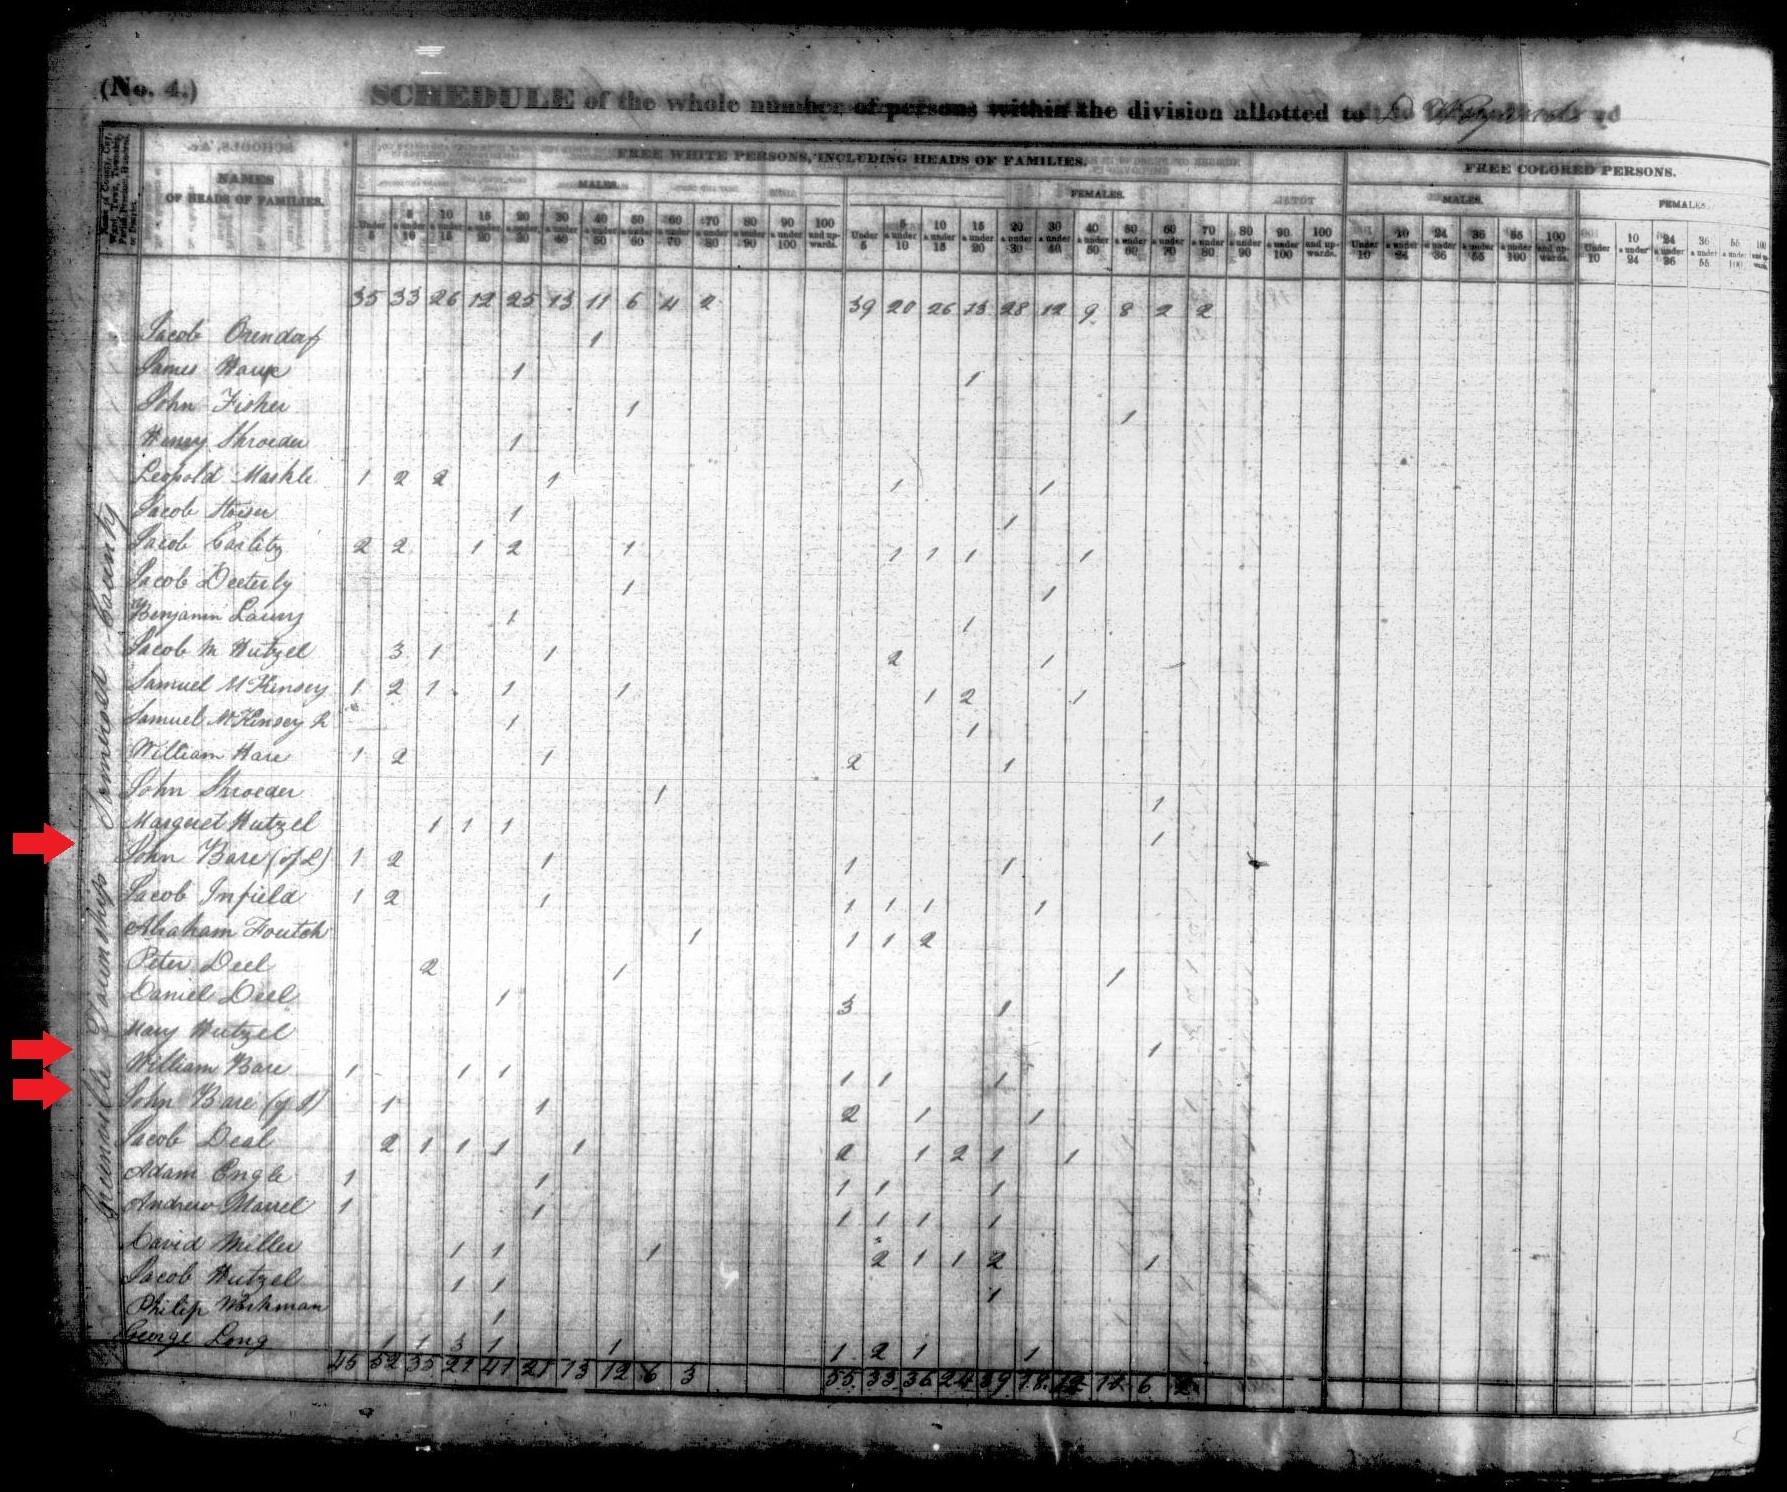 (No. 4.)
SCHEDULE of the whole number of persons within the division allotted to
NAMES OF HEADS OF FAMILIES.
FREE WHITE PERSONS, INCLUDING HEADS OF FAMILIES.
FREE COLORED PERSONS.
MALES. FEMALES. MALES. FEMALES.
Under 5 5 & under 10 10 & under 15 15 & under 20 20 & under 30 30 & under 40 40 & under 50 50 & under 60 60 & under 70 70 & under 80 80 & under 90 90 & under 100 100 and upwards. Under 5 5 & under 10 10 & under 15 15 & under 20 20 & under 30 30 & under 40 40 & under 50 50 & under 60 60 & under 70 70 & under 80 80 & under 90 90 & under 100 100 and upwards. Under 10 10 & under 24 24 & under 36 36 & under 55 55 & under 100 100 and upwards. Under 10 10 & under 24 24 & under 36 36 & under 55 55 & under 100
35 33 26 12 25 13 11 6 4 2 39 20 26 13 28 12 9 8 2 2
Greenville Township Somerset County
Jacob Orendorf 1
James Hare 1 1
John Fisher 1 1
Henry Shroeder 1
Leopold Markle 1 2 2 1 1 1
Jacob 1 1
Jacob 2 2 1 2 1 1 1 1 1
Jacob Deeterly 1 1
Benjamin Lowry 1 1
Jacob M Hutzel 3 1 1 2 1
Samuel McKinsey 1 2 1 1 1 1 2 1
Samuel McKinsey 1 1
William Hare 1 2 1 2 1
John Shroeder 1 1
Margaret Hutzel 1 1 1 1
John Bare (of L) 1 2 1 1 1
Jacob Infield 1 2 1 1 1 1 1
Abraham Foutch 1 1 1 2
Peter Deel 2 1 1
Daniel Deel 1 3 1
Mary Hutzel 1
William Bare 1 1 1 1 1 1
John Bare (of J) 1 1 2 1 1
Jacob Deal 2 1 1 1 1 2 1 2 1 1
Adam Engle 1 1 1 1 1
Andrew 1 1 1 1 1 1
David Miller 1 1 1 2 1 1 2 1
Jacob Hutzel 1 1 1
Philip Workman 1
George Long 1 1 3 1 1 1 2 1 1
45 52 35 21 41 21 13 12 6 3 55 33 36 24 39 18 12 6